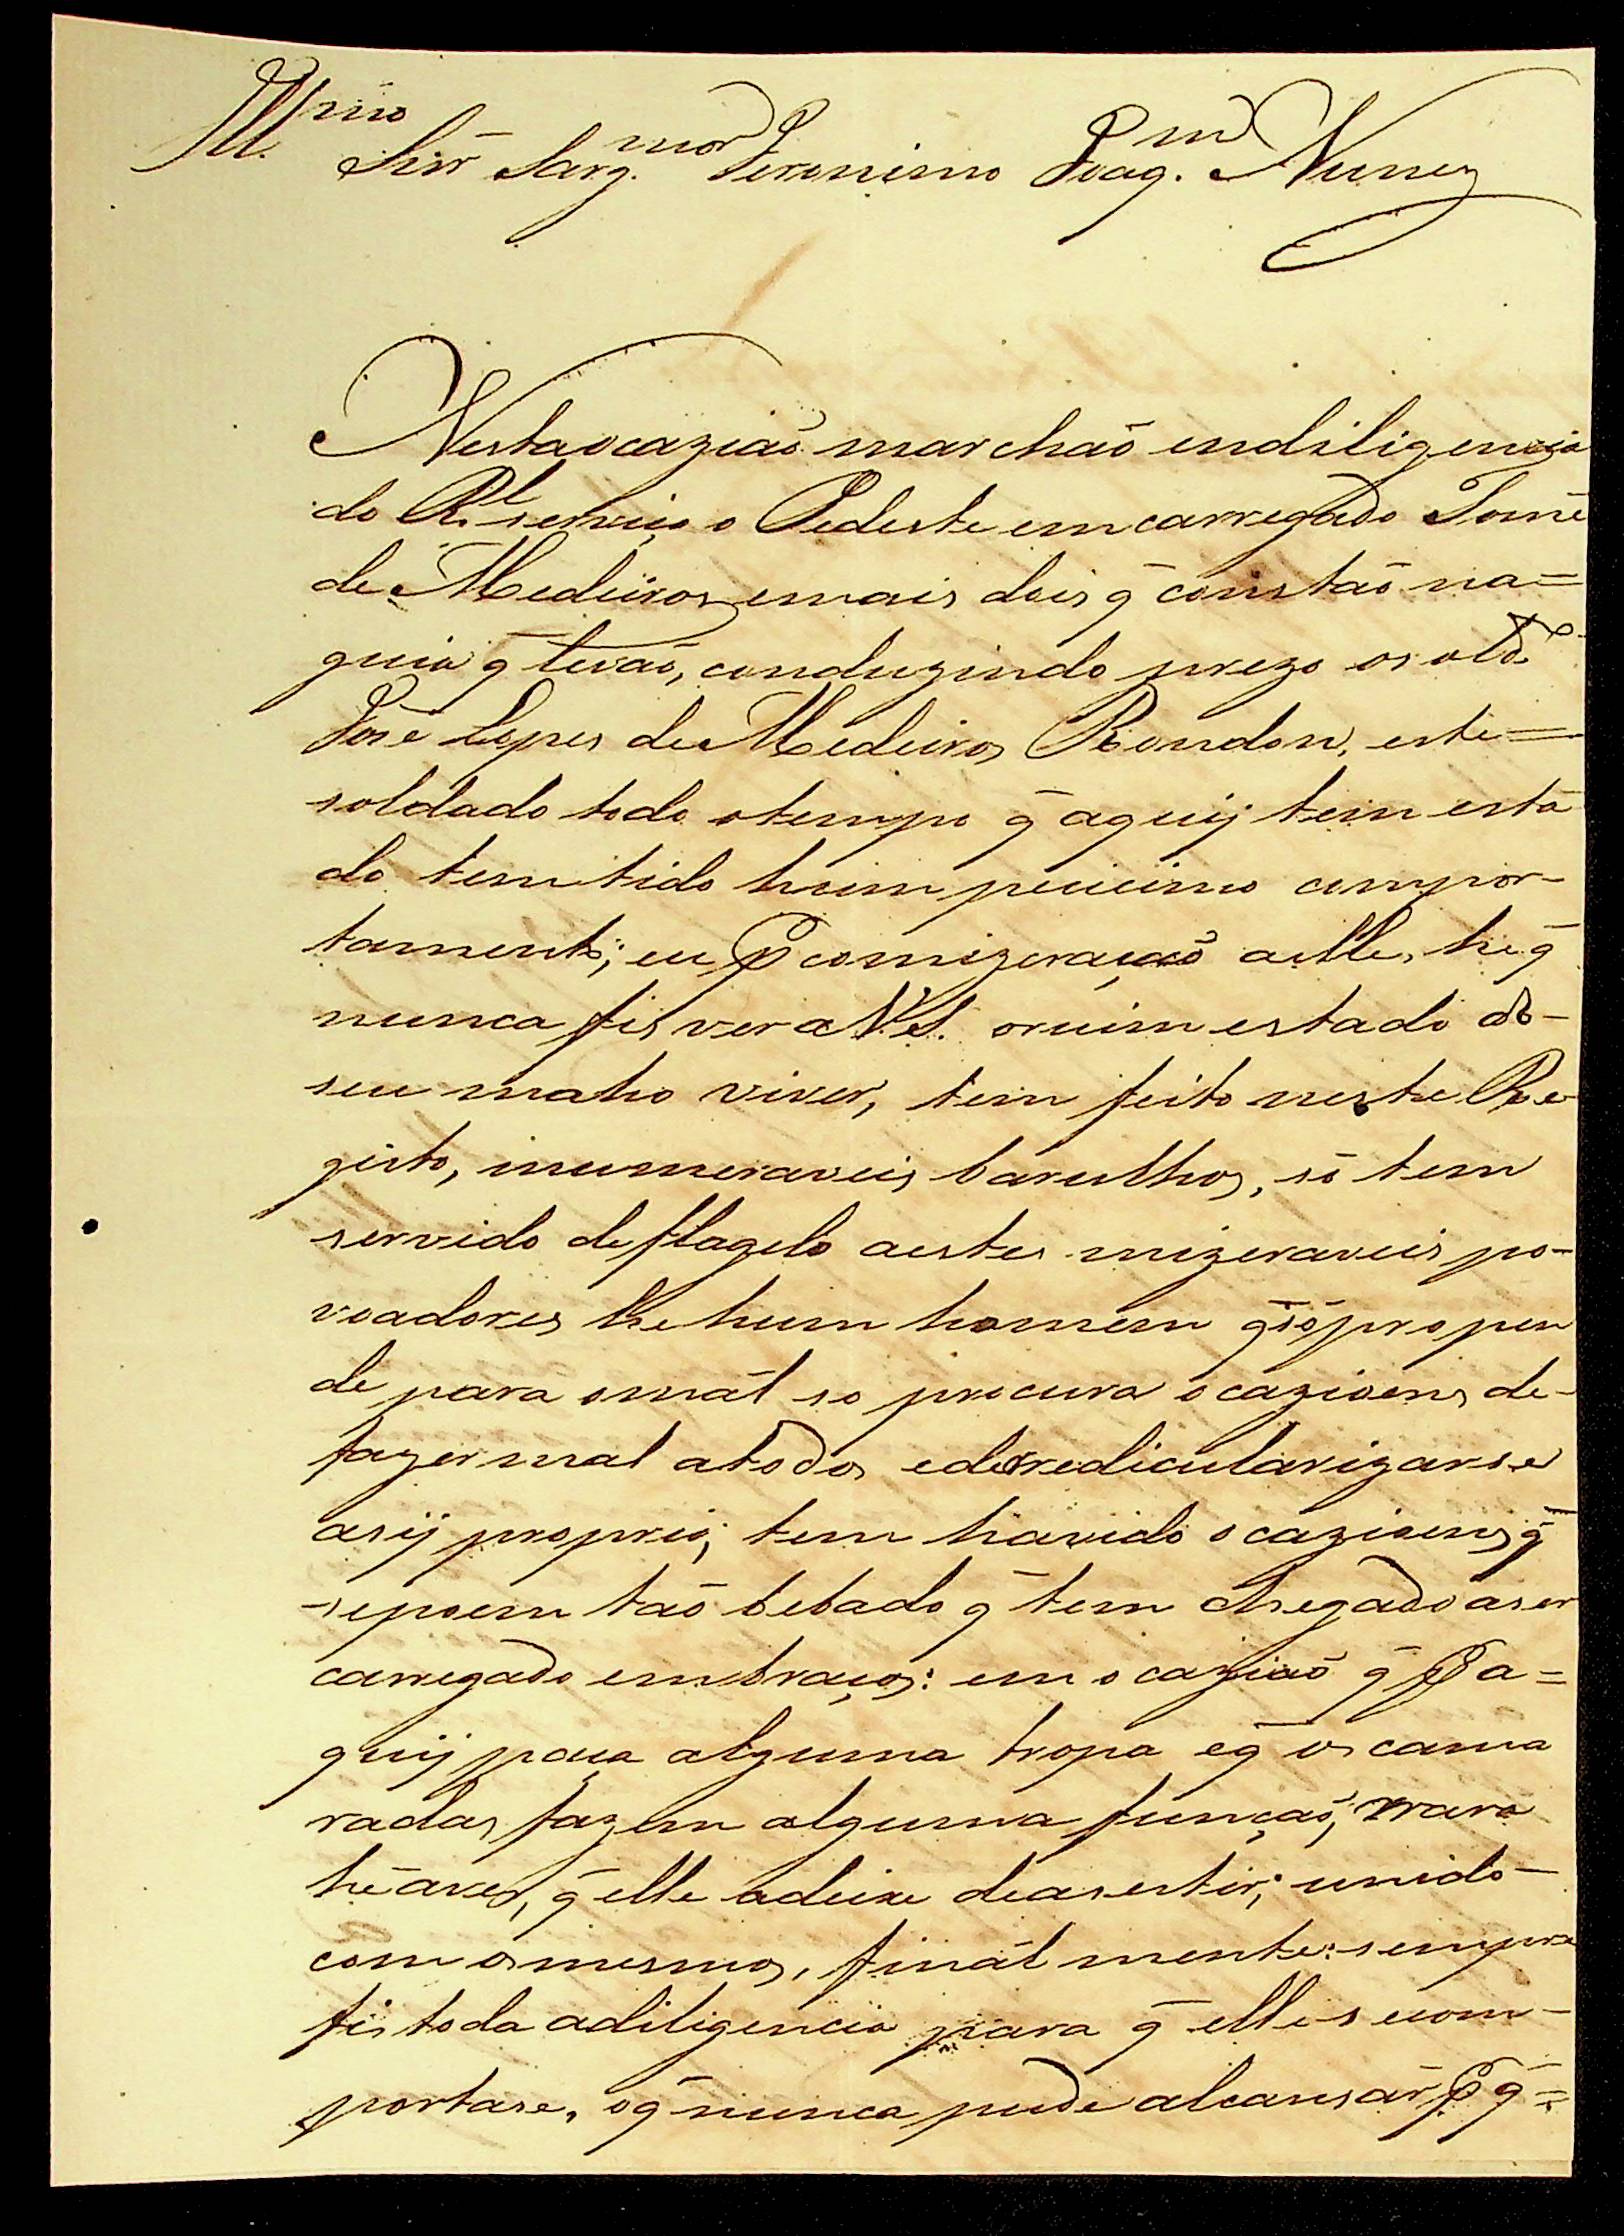 Ill.mo Snr Sarg.mor Jeronimo Joaq.m Nunez
Nesta ocazião marchão emdiligencia
do R.l serviço o Pedeste emcarregado Tomé
de Medeiros, emais dois q̃ constão na=
guia q̃ levão, conduzindo prezo osold.o
José Lopes de Medeiros Rondon, este=
soldado todo otempo q̃ aquij tem esta
do tem tido huim pecicimo compor-
tamento; eu p comizeração aelle, he q̃
nunca fis ver a V.S. oruim estado do-
seu maho viver, tem feito neste Re-
gisto, inumeraveis barulhos, só tem
servido deflagelo aestes mizeraveis po-
voadores he hum homem q̃ só propen
de para omál so procura ocazioens de-
fazer mal atodos ede redicularizarse
asij proprio; tem havido ocazioens q̃
sepoem tão bebado q̃ tem chegado aser
carregado embraços: em ocazião q̃ p a=
quij paça alguma tropa eq̃ os cama
radas fazem alguma função, rara
he avez, q̃ elle adeixe deasestir; unido-
com osmesmos, finálmente: sempre
fis toda adiligencia para q̃ elle secom-
portase, oq̃ nunca pude alcansár p q̃=